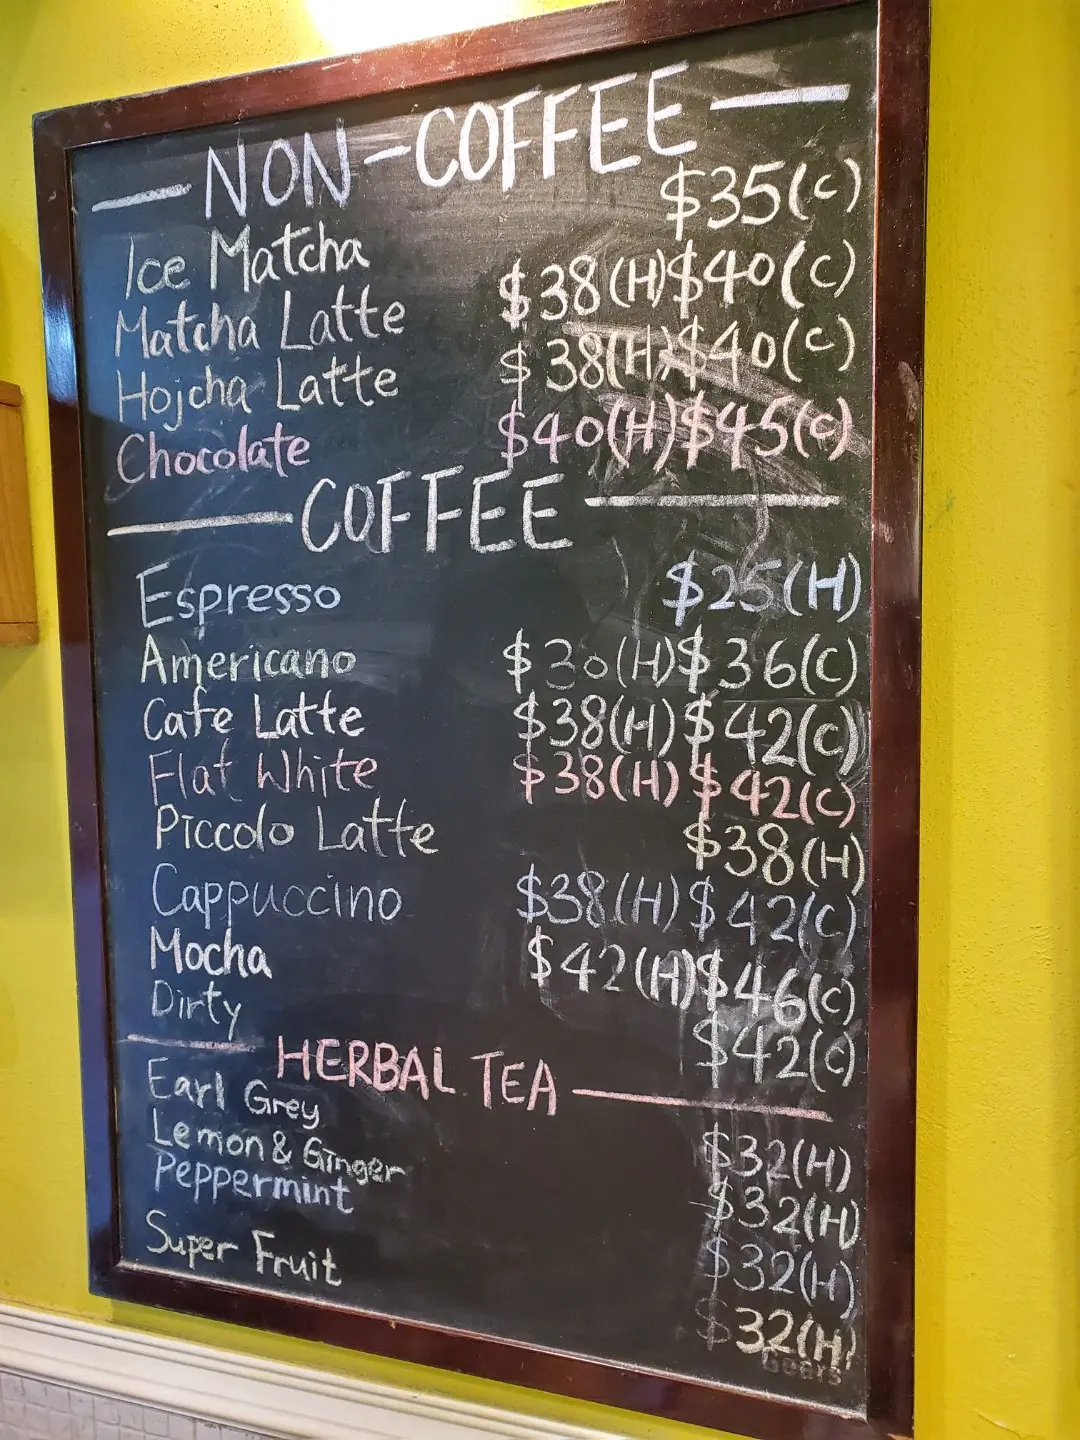 NON-COFFEE
Ice Matcha $35(C)
Matcha Latte $38(H) $40(C)
Hojcha Latte $38(H) $40(C)
Chocolate $40(H) $45(C)
COFFEE
Espresso $25(H)
Americano $30(H) $36(C)
Cafe Latte $38(H) $42(C)
Flat White $38(H) $42(C)
Piccolo Latte $38(H)
Cappuccino $38(H) $42(C)
Mocha $42(H) $46(C)
Dirty $42(C)
HERBAL TEA
Earl Grey $32(H)
Lemon & Ginger $32(H)
Peppermint $32(H)
Super Fruit $32(H)
Gears